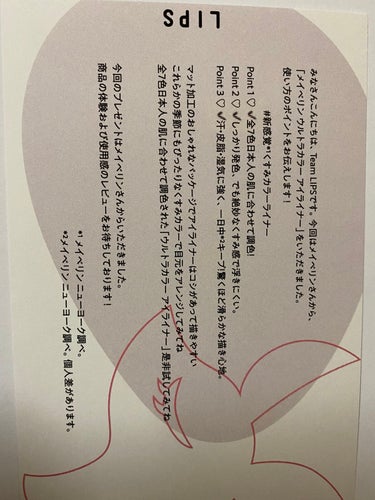 LIPS
みなさんこんにちは、Team LIPSです。今回はメイベリンさんから、
「メイベリン ウルトラカラー アイライナー」をいただきました。
使い方のポイントをお伝えします！
#新感覚*¹くすみカラーライナー
Point 1 ♡ ✔全7色日本人の肌に合わせて調色!
Point 2 ♡ ✔しっかり発色、でも絶妙なくすみ感で浮きにくい。
Point 3 ♡ ✔汗・皮脂・湿気に強く、一日中*²キープ!驚くほど滑らかな描き心地。
マット加工のおしゃれなパッケージでアイライナーはコシがあって描きやすい
これからの季節にもぴったりなくすみカラーで目元をアレンジしてみてね
全7色日本人の肌に合わせて調色された「ウルトラカラー アイライナー」是非試してみてね
今回のプレゼントはメイベリンさんからいただきました。
商品の体験および使用感のレビューをお待ちしております！
*¹ メイベリン ニューヨーク調べ。
*² メイベリン ニューヨーク調べ。個人差があります。